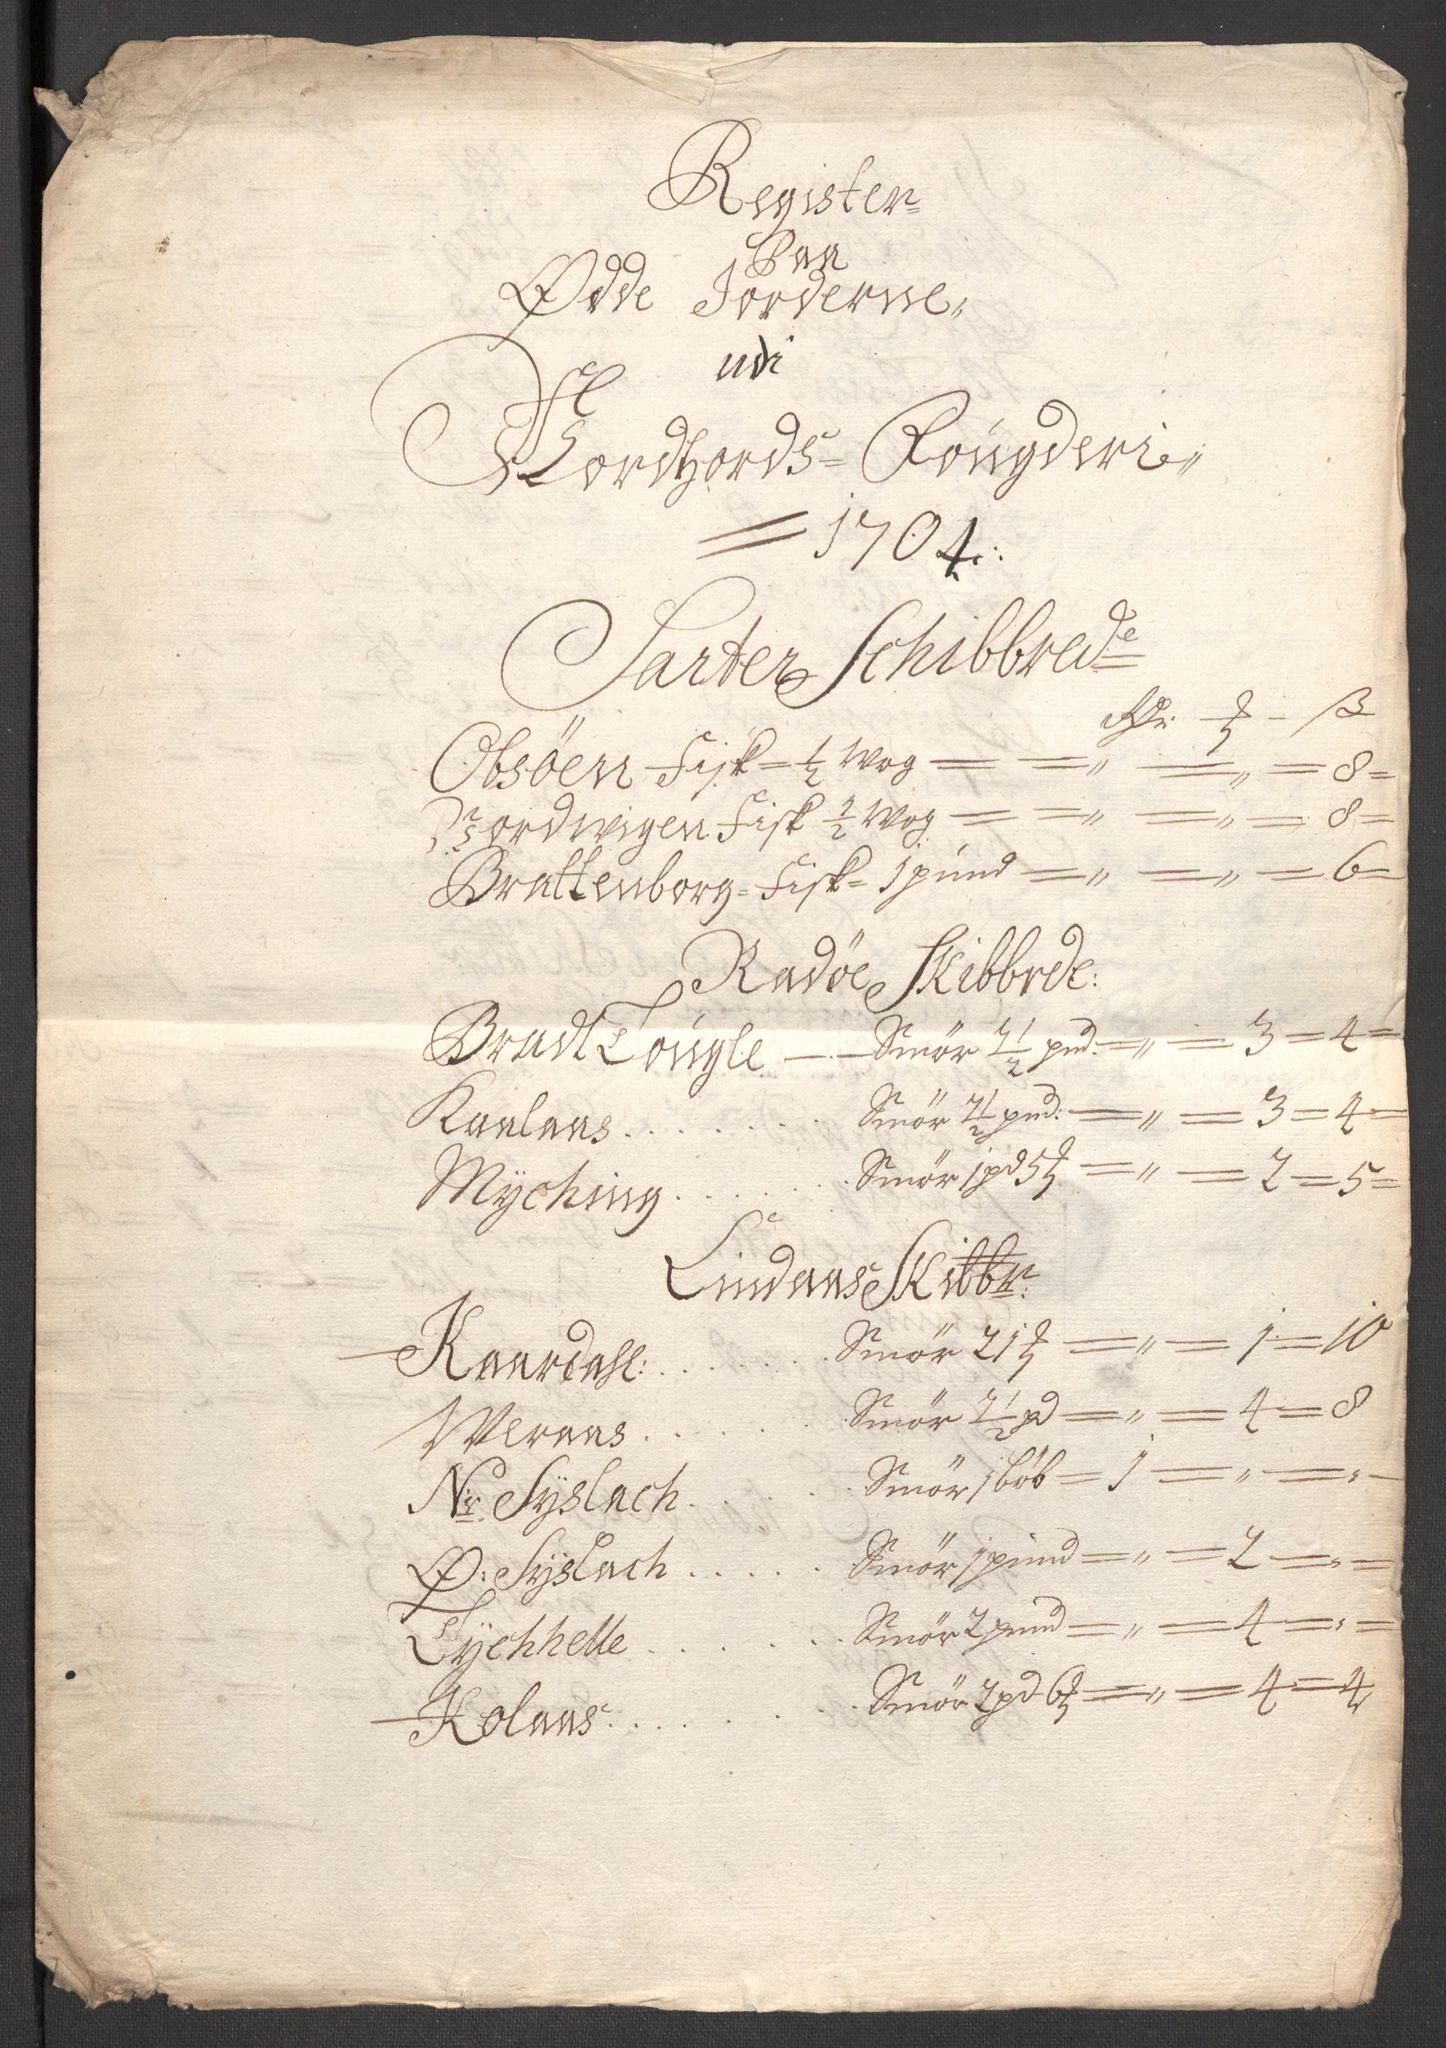 Register
Paa
Ødde Jorderne
udi
Nordhords Fougderi
1704:
Sarter Schibbrede
Rdr. ß
Obsöen Fisk ½ Wog = = " = " = 8 =
Nordwigen Fisk ½ Wog = = " = " = 8 =
Brattenborg Fisk 1 pund = " = " = 6
Radöe Skibbrde:
Bradtougle Smör 2½ pnd. = " = 3 = 4 =
Kaalaas Smör 2½ pnd: = " = 3 = 4 =
Myching Smör 1 pd 5 = " = 2 = 5 =
Lindaas Skibbr:
Kaardahl: Smör 21 = " = 1 = 10
Weraas Smör 2½ pd = " = 4 = 8
Nr Syslach Smör 1 løb = 1 = " = " =
Ø: Syslach Smör 1 pund = " = 2 = " =
Tychhelle Smör 2 pund = " = 4 = " =
Kolaas Smör 2 pd 6 = " = 4 = 4